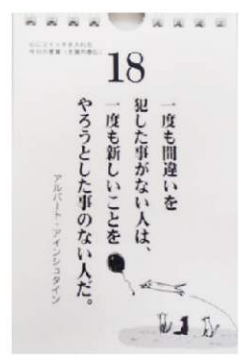 心にスイッチを入れる
18
一度も間違いを
犯した事がない人は、
一度も新しいことを
やろうとした事のない人だ。
アルバート・アインシュタイン